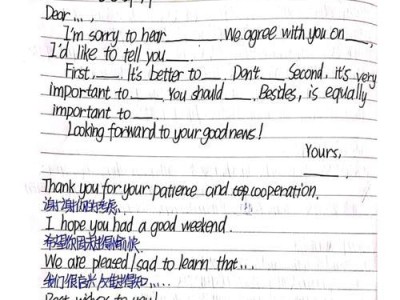 Dear...,
I'm sorry to hear____. We agree with you on___,
I'd like to tell you____.
First,____. It's better to____. Don't____ Second, it's very
important to____. You should____. Besides, is equally
important to____.
Looking forward to your good news!
Yours,
____.
Thank you for your patience and cooperation.
I hope you had a good weekend.
希望你周末过得愉快.
We are pleased/sad to learn that...
Best wishes to you!